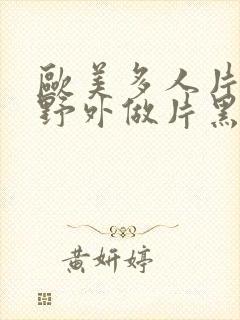 歐美多人片
野外做片黑
黃妍婷